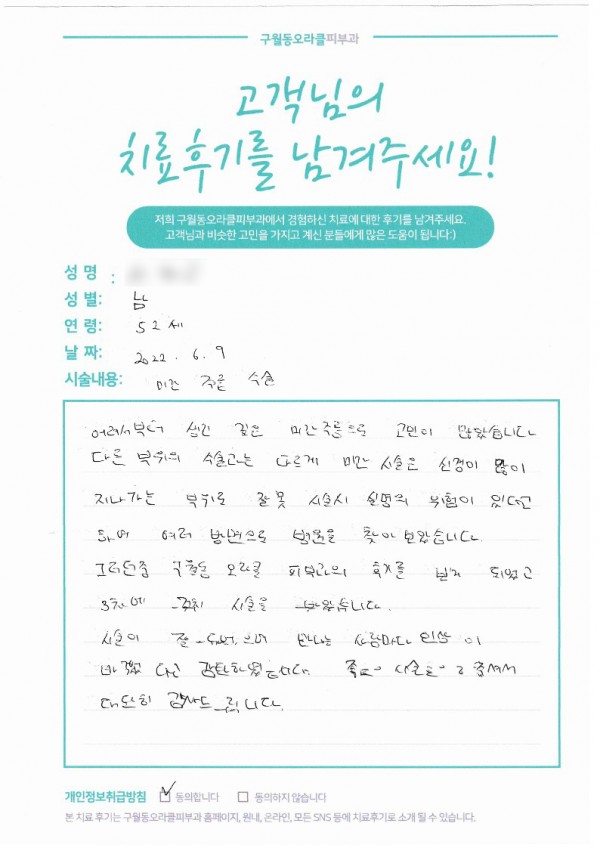 구월동오라클피부과
고객님의
치료후기를 남겨주세요!
저희 구월동오라클피부과에서 경험하신 치료에 대한 후기를 남겨주세요.
고객님과 비슷한 고민을 가지고 계신 분들에게 많은 도움이 됩니다:)
성 명 :
성 별: 남
연 령: 52세
날 짜: 2022. 6. 9
시술내용: 미간 주름 시술
어려서부터 생긴 깊은 미간주름으로 고민이 많았습니다
다른 부위의 시술과는 다르게 미간 시술은 신경이 많이
지나가는 부위로 잘못 시술시 실명의 위험이 있다고
하여 여러 방면으로 병원을 찾아 보았습니다.
그러던중 구월동 오라클 피부과의 후기를 보게 되었고
3차에 시술을 받았습니다.
시술이 잘 되었으며 만나는 사람마다 인상이
바꼈다고 감탄하였습니다. 좋은 시술을 해 주셔서
대단히 감사드립니다.
개인정보취급방침 ☑ 동의합니다 ☐ 동의하지 않습니다
본 치료 후기는 구월동오라클피부과 홈페이지, 원내, 온라인, 모든 SNS 등에 치료후기로 소개 될 수 있습니다.